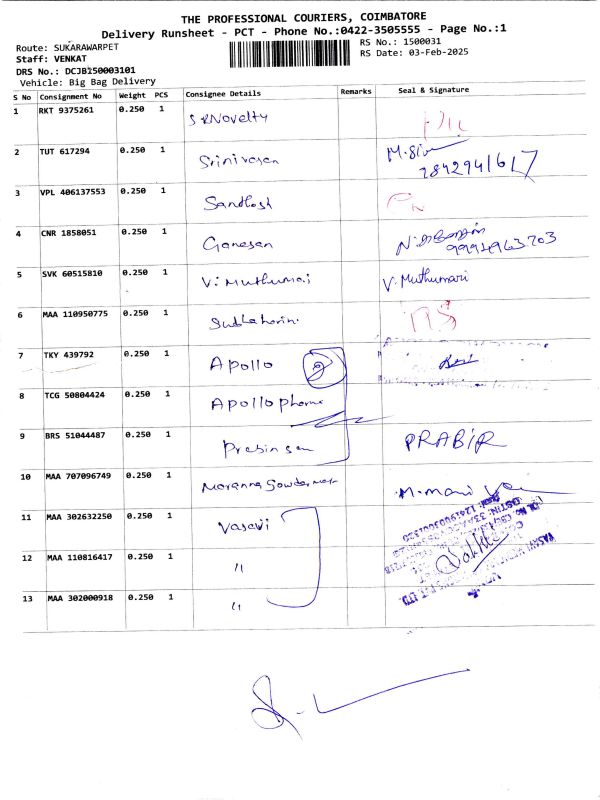 THE PROFESSIONAL COURIERS, COIMBATORE
Delivery Runsheet - PCT - Phone No.:0422-3505555 - Page No.:1
Route: SUKARAWARPET
RS No.: 1500031
Staff: VENKAT
RS Date: 03-Feb-2025
DRS No.: DCJB250003101
Vehicle: Big Bag Delivery
S No Consignment No Weight PCS Consignee Details Remarks Seal & Signature
1 RKT 9375261 0.250 1 S R Novelty
2 TUT 617294 0.250 1 Srinivasan M.Siv 7842941617
3 VPL 406137553 0.250 1 Santhosh
4 CNR 1858051 0.250 1 Ganesan 9994963703
5 SVK 60515810 0.250 1 V. Muthumari V. Muthumari
6 MAA 110950775 0.250 1
7 TKY 439792 0.250 1 Apollo 2
8 TCG 50804424 0.250 1 Apollo pharma
9 BRS 51044487 0.250 1 PRABIR
10 MAA 707096749 0.250 1 M.mani
11 MAA 302632250 0.250 1 Vasavi
12 MAA 110816417 0.250 1 "
13 MAA 302000918 0.250 1 "